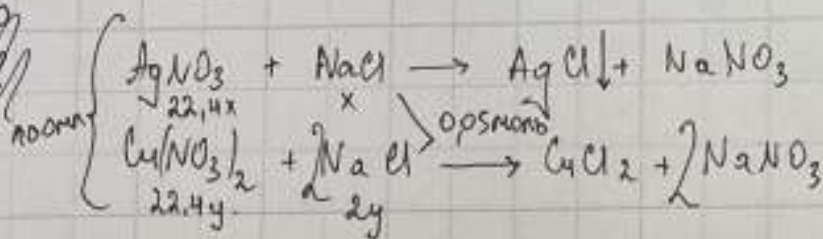 AgNO₃ + NaCl → AgCl↓ + NaNO₃
22,4x x
0,05моль
Cu(NO₃)₂ + 2NaCl → CuCl₂ + 2NaNO₃
22,4y 2y